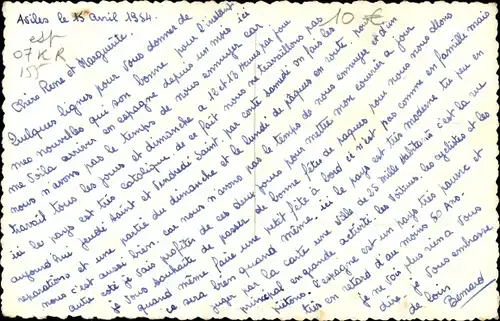 Aviles le 15 Avril 1954.
esp
07 K R
155
10 €
Chers René et Marguerite.
Quelques lignes pour vous donner de
mes nouvelles qui son bonne pour l'instant
me voila arriver en espagne depuis un mois ici
nous n'avons pas le temps de nous ennuyer car
travail tous les jours et dimanche a 12 et 13 heures par jour
ici les pays est très catolique. de ce fait nous ne travaillons pas
aujourd'hui jeudi Saint et Vendredi Saint. par contre samedi on fais les
réparations et une partie du dimanche et le lundi de paques en route pour
nous c'est aussi bien. car nous n'avons pas le temps de nous ennuyer et d'un
autre coté je vais profiter de ces deux jours pour mettre mon courier a jour
je vous souhaite de passer de bonne fête de paques pour nous nous allons
quand même faire une petit fête a bord ici n'est pas comme en famille mais
ce sera bien quand même. ici le pays est très moderne tu peu en
juger par la carte une ville de 25 mille Habitants c'est la rue
principal en grande activité. les voitures. les cyclistes et les
pietons. l'espagne est un pays très pauvre et
très en retard d'au moins 50 Ans.
je ne vois plus rien a vous
dire je vous embrasse
de loin
Bernard